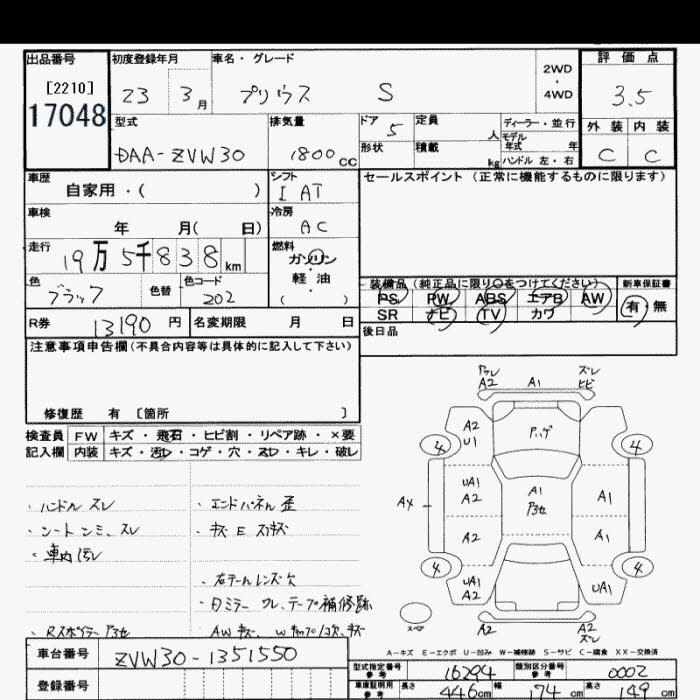 出品番号 初度登録年月 車名・グレード 評価点
[2210] 23 3月 プリウス S 2WD・4WD 3.5
17048
型式 排気量 ドア 定員 ディーラー・並行 外装 内装
DAA-ZVW30 1800cc 5 人 モデル年式 年 C C
形状 積載 kg ハンドル 左・右
車歴 シフト セールスポイント (正常に機能するものに限ります)
自家用・( ) I AT
車検 冷房
年 月( 日) AC
走行 燃料
19万5千838km ガソリン
軽油
( )
色 色替 色コード 装備品 (純正品に限り○をつけてください) 新車保証書
ブラック 202 PS PW ABS エアB AW 有・無
SR ナビ TV カワ
R券 13190円 名変期限 月 日 後日品
注意事項申告欄(不具合内容等は具体的に記入して下さい)
修復歴 有 [箇所 ]
検査員 FW キズ・飛石・ヒビ割・リペア跡・×要
記入欄 内装 キズ・汚レ・コゲ・穴・スレ・キレ・破レ
・ハンドル スレ ・エンドパネル 歪
・シートシミ、スレ ・キズ E スリキズ
・車内汚レ
・右テールレンズ欠
・Dミラー ワレ、テープ補修跡
・Rスポイラー
ワレ A2 A1 ズレ ヒビ
A2 U1 P.ハゲ
4 4
UA1 A2 A1 A1
AX
A2 A1
4 4
UA1 A2 UA1
スペア A2 A2 ズレ
A-キズ E-エクボ U-凹み W-補修跡 S-サビ C-腐食 XX-交換済
車台番号 ZVW30-1351550
型式指定番号 参考 16294 類別区分番号 参考 0002
登録番号 車庫証明用 参考 長さ 446cm 幅 174cm 高さ 149cm